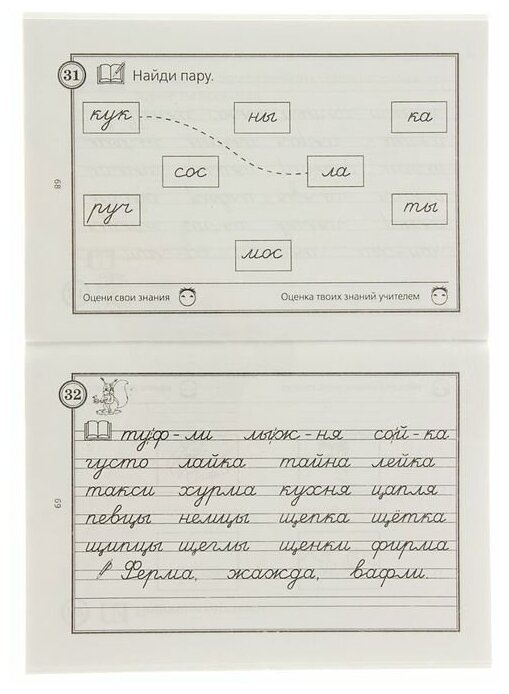 31 Найди пару.
кук ны ка
сос ла
руч ты
мос
Оцени свои знания Оценка твоих знаний учителем
68
32
туф-ли лыж-ня сой-ка
густо лайка тайна лейка
такси хурма кухня цапля
певцы немцы щепка щётка
щипцы щеглы щенки фирма
Ферма, жажда, вафли.
69